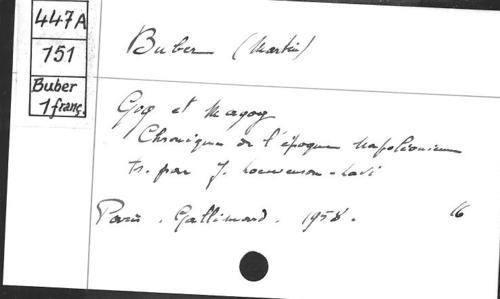 447A
151
Buber
1 franç.
Buber (Martin)
Gog et Magog
Chronique de l'époque napoléonienne
tr. par J. Loewenson-Lavi
Paris. Gallimard. 1958.
16